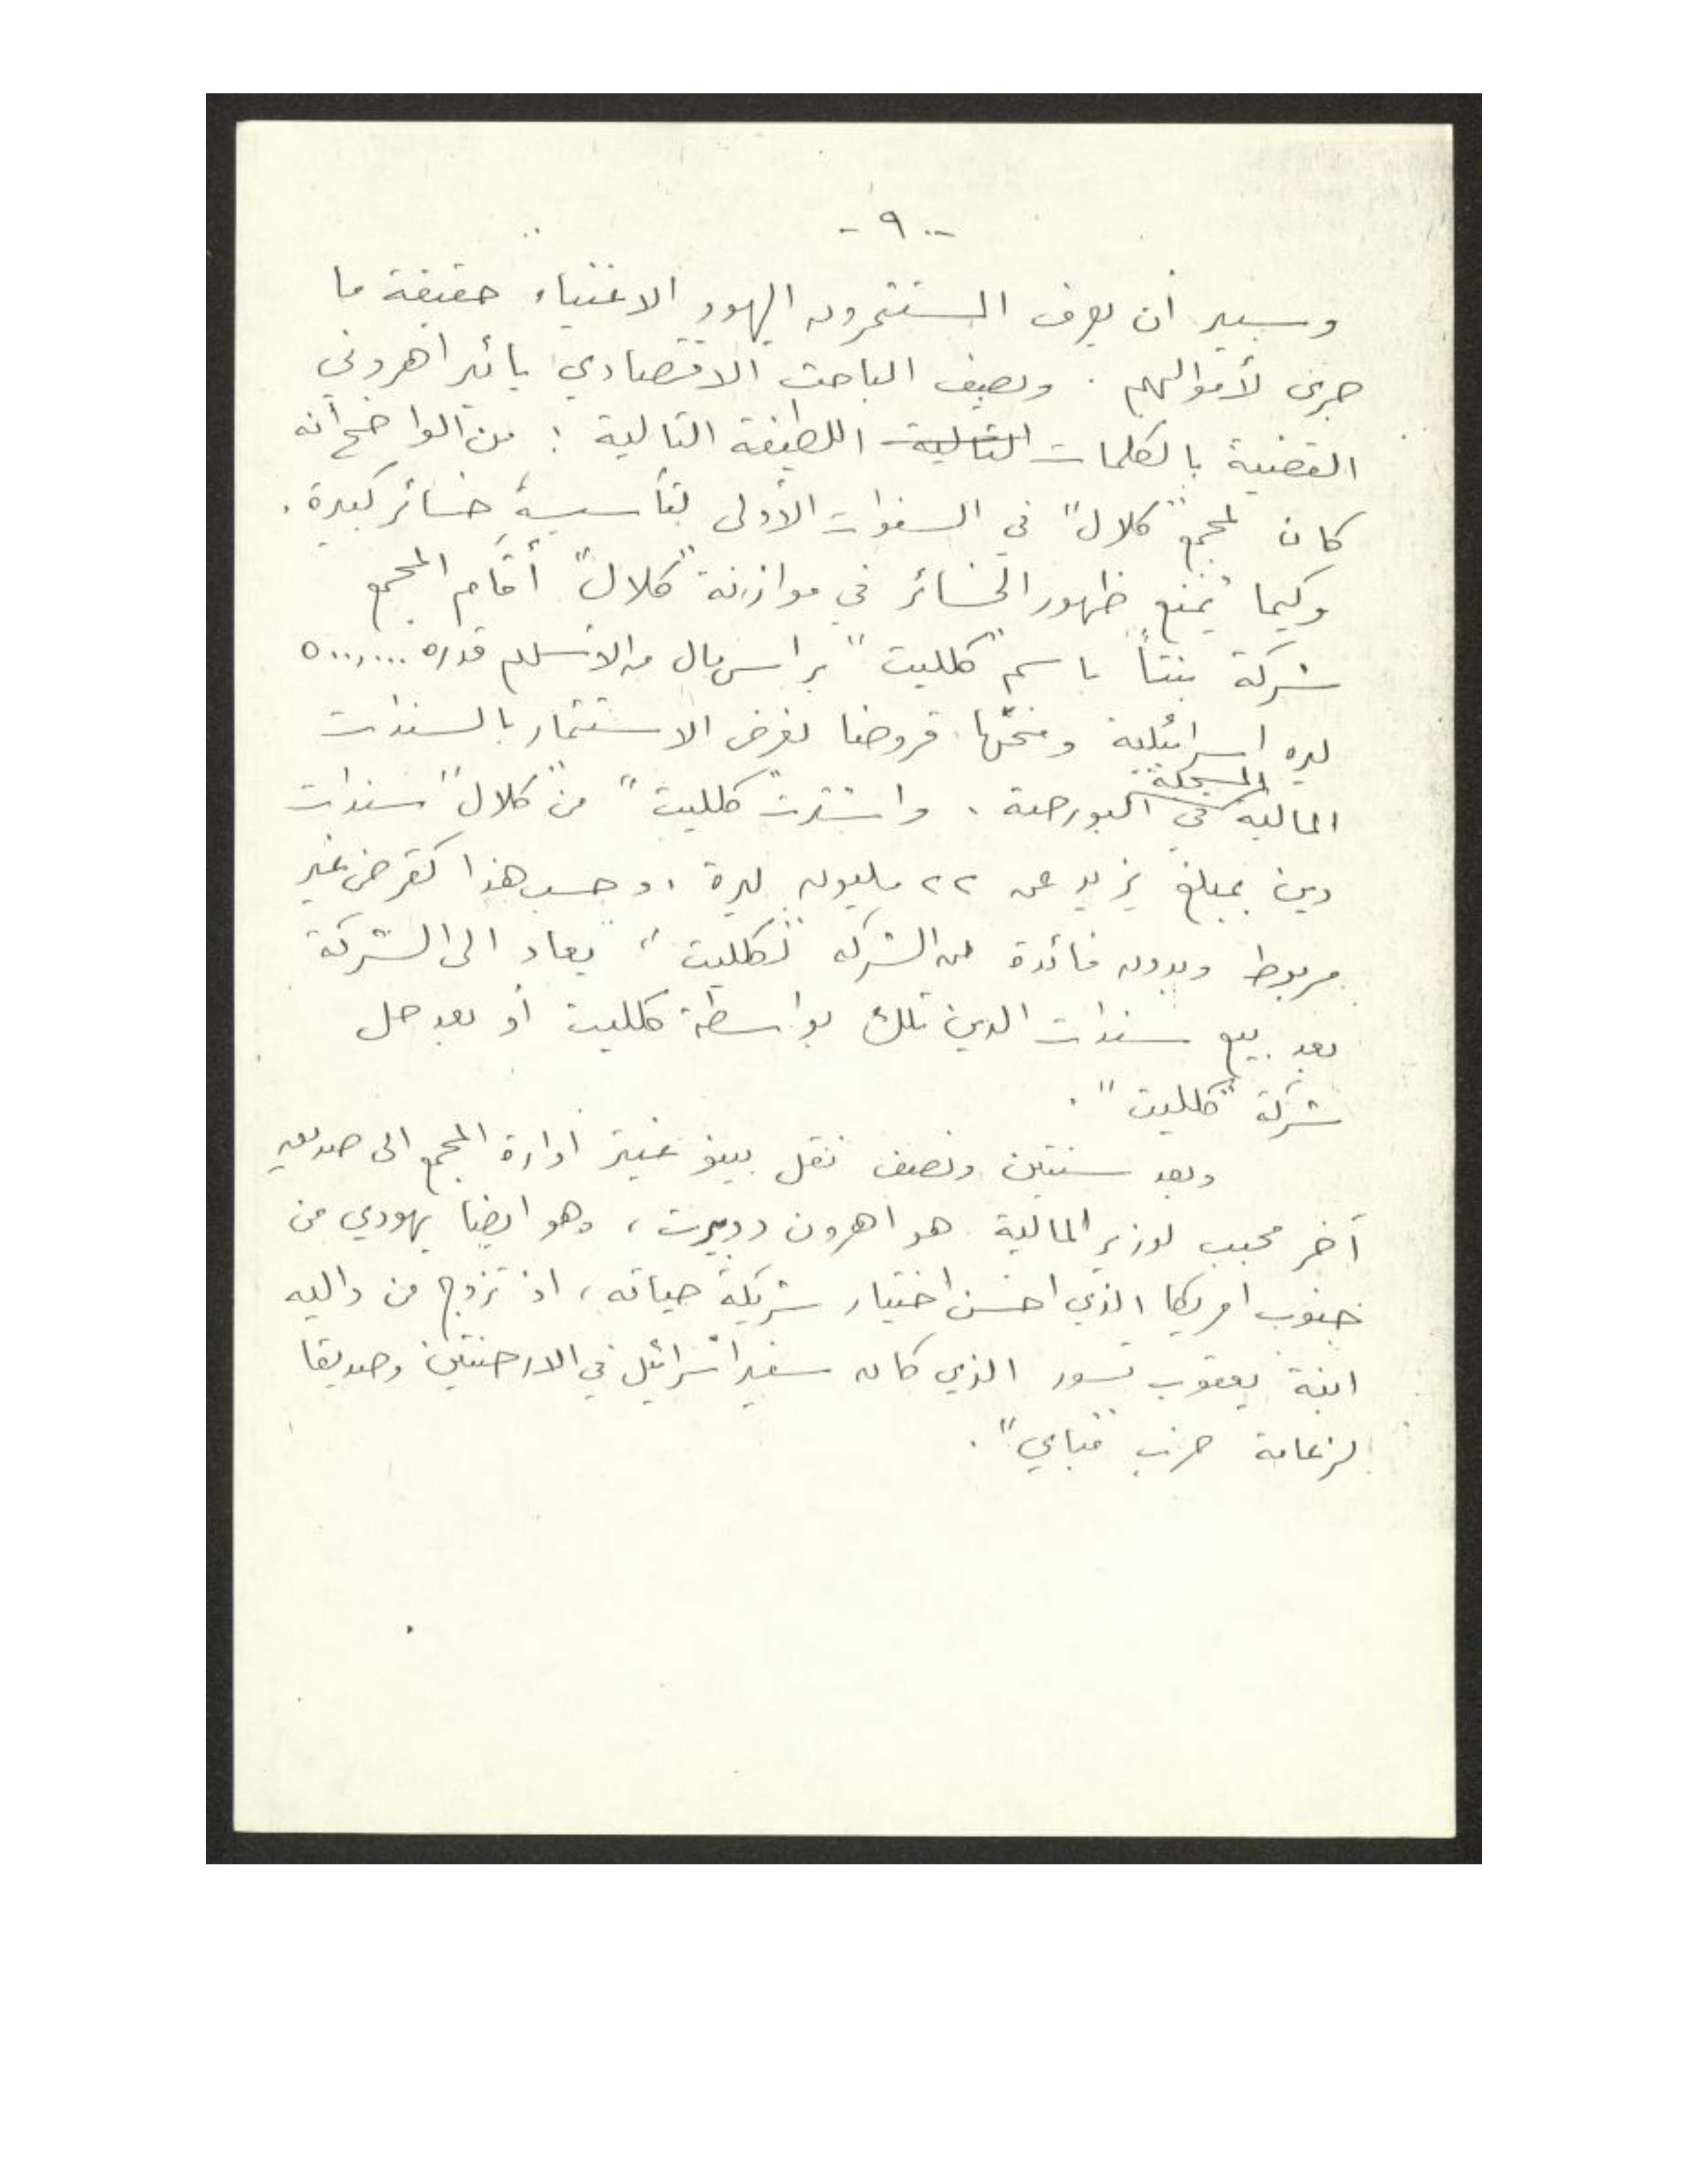 - ٩ -
وسيد أن يعرف المستثمرون اليهود الاغنياء حقيقة ما
جرى لأموالهم . ويصف الباحث الاقتصادي يائير اهروني
القضية بالكلمات التالية اللطيفة التالية : من الواضح أنه
كان لمجمع "كلال" في السنوات الأولى لتأسيسه خسائر كبيرة .
وكيما يمنع ظهور الخسائر في موازنة "كلال" أقام المجمع
شركة بنتاً باسم "كلليت" براس مال من الاسهم قدره ٥٠٠,٠٠٠
ليره اسرائيلية ومنحها قروضا لغرض الاستثمار بالسندات
المالية المسجلة في البورصة . واشترت "كلليت" من "كلال" سندات
دين بمبلغ يزيد عن ٢٢ مليون ليرة ، وحسب هذا كقرض غير
مربوط وبدون فائدة من الشركه "لكلليت" يعاد الى الشركة
بعد بيع سندات الدين تلك بواسطة كلليت أو بعد حل
شركة "كلليت" .
وبعد سنتين ونصف نقل بينو غيتر ادارة المجمع الى صديق
آخر محبب لوزير المالية هو اهرون دوبرت ، وهو ايضا يهودي من
جنوب امريكا الذي احسن اختيار شريكة حياته ، اذ تزوج من داليه
ابنة يعقوب تسور الذي كان سفير اسرائيل في الارجنتين وصديقا
لزعامة حزب "مباي" .